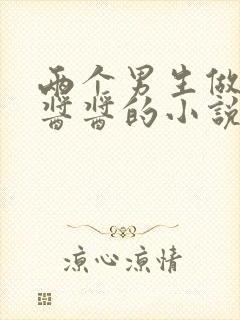 两个男生做
酱酱的小说
凉心凉情